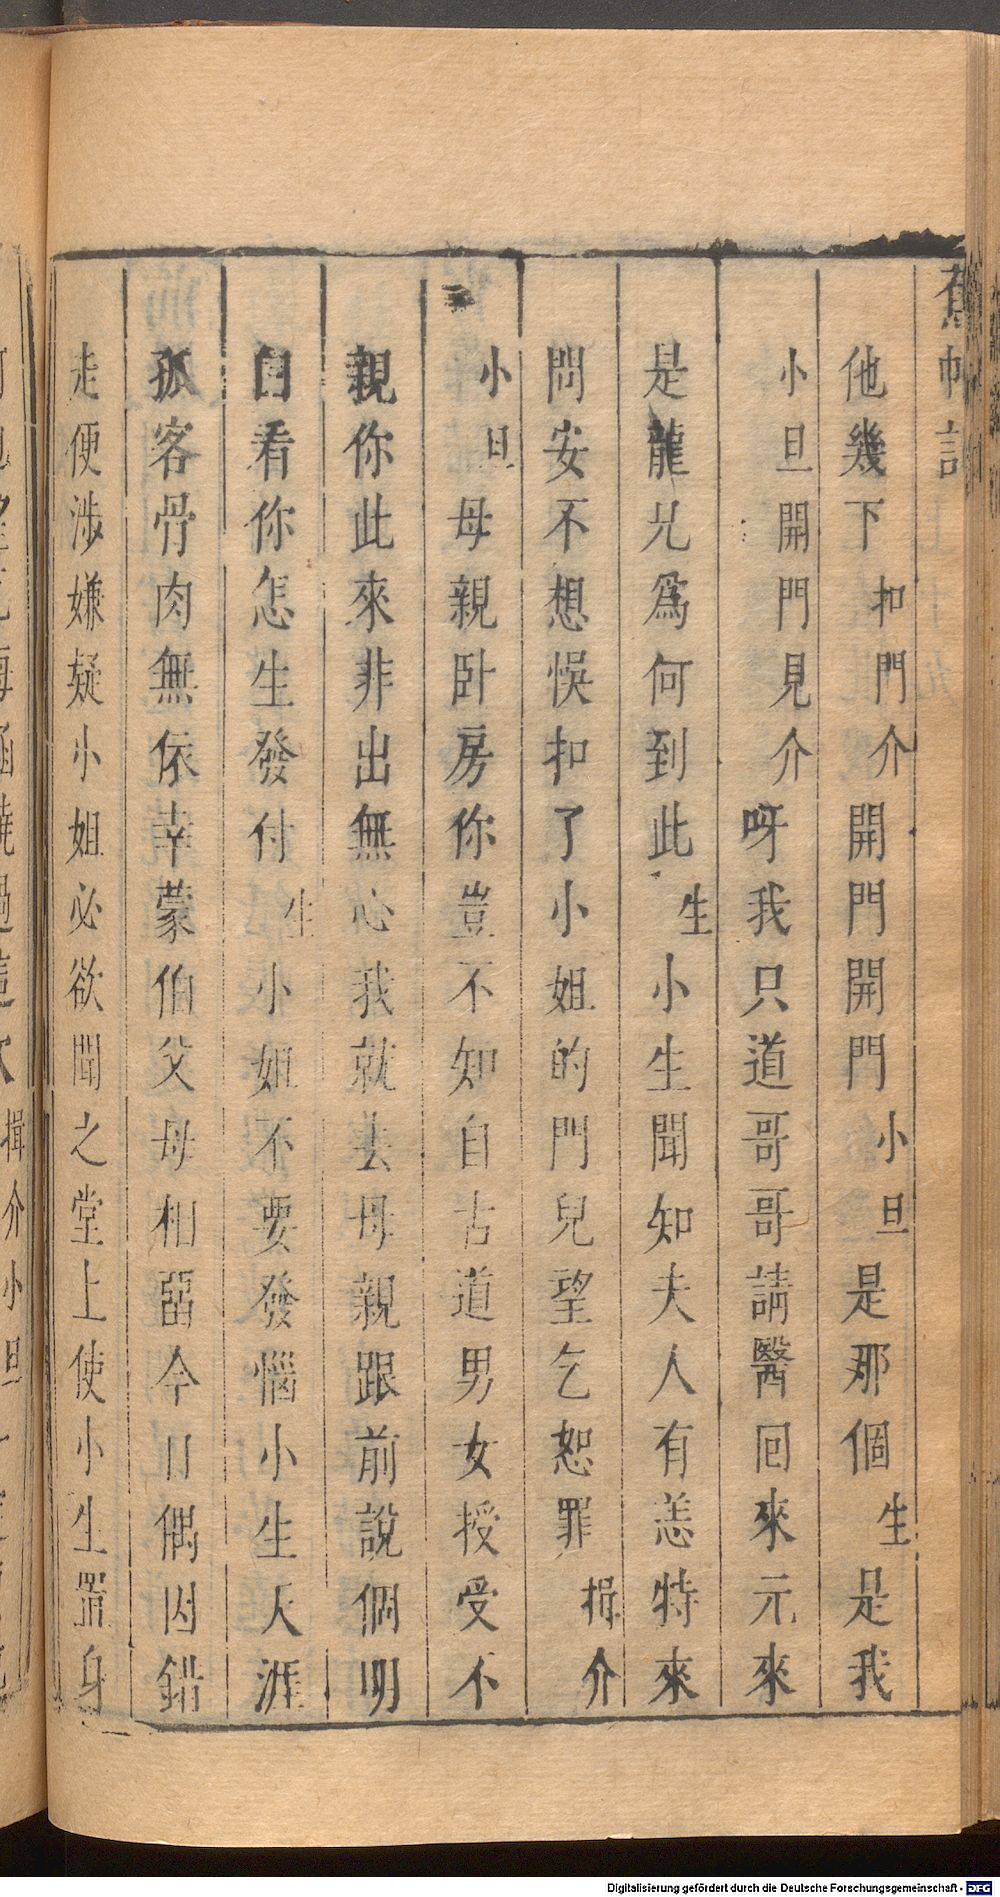 蕉帕記
他幾下扣門介開門開門小旦是那個生是我
小旦開門見介呀我只道哥哥請醫回來元來
是龍兄爲何到此生小生聞知夫人有恙特來
問安不想悞扣了小姐的門兒望乞恕罪揖介
小旦母親卧房你豈不知自古道男女授受不
親你此來非出無心我就去母親跟前說個明
白看你怎生發付生小姐不要發惱小生天涯
孤客骨肉無依幸蒙伯父母相留今日偶因錯
走便涉嫌疑小姐必欲聞之堂上使小生置身
揖介小旦
Digitalisierung gefördert durch die Deutsche Forschungsgemeinschaft - DFG